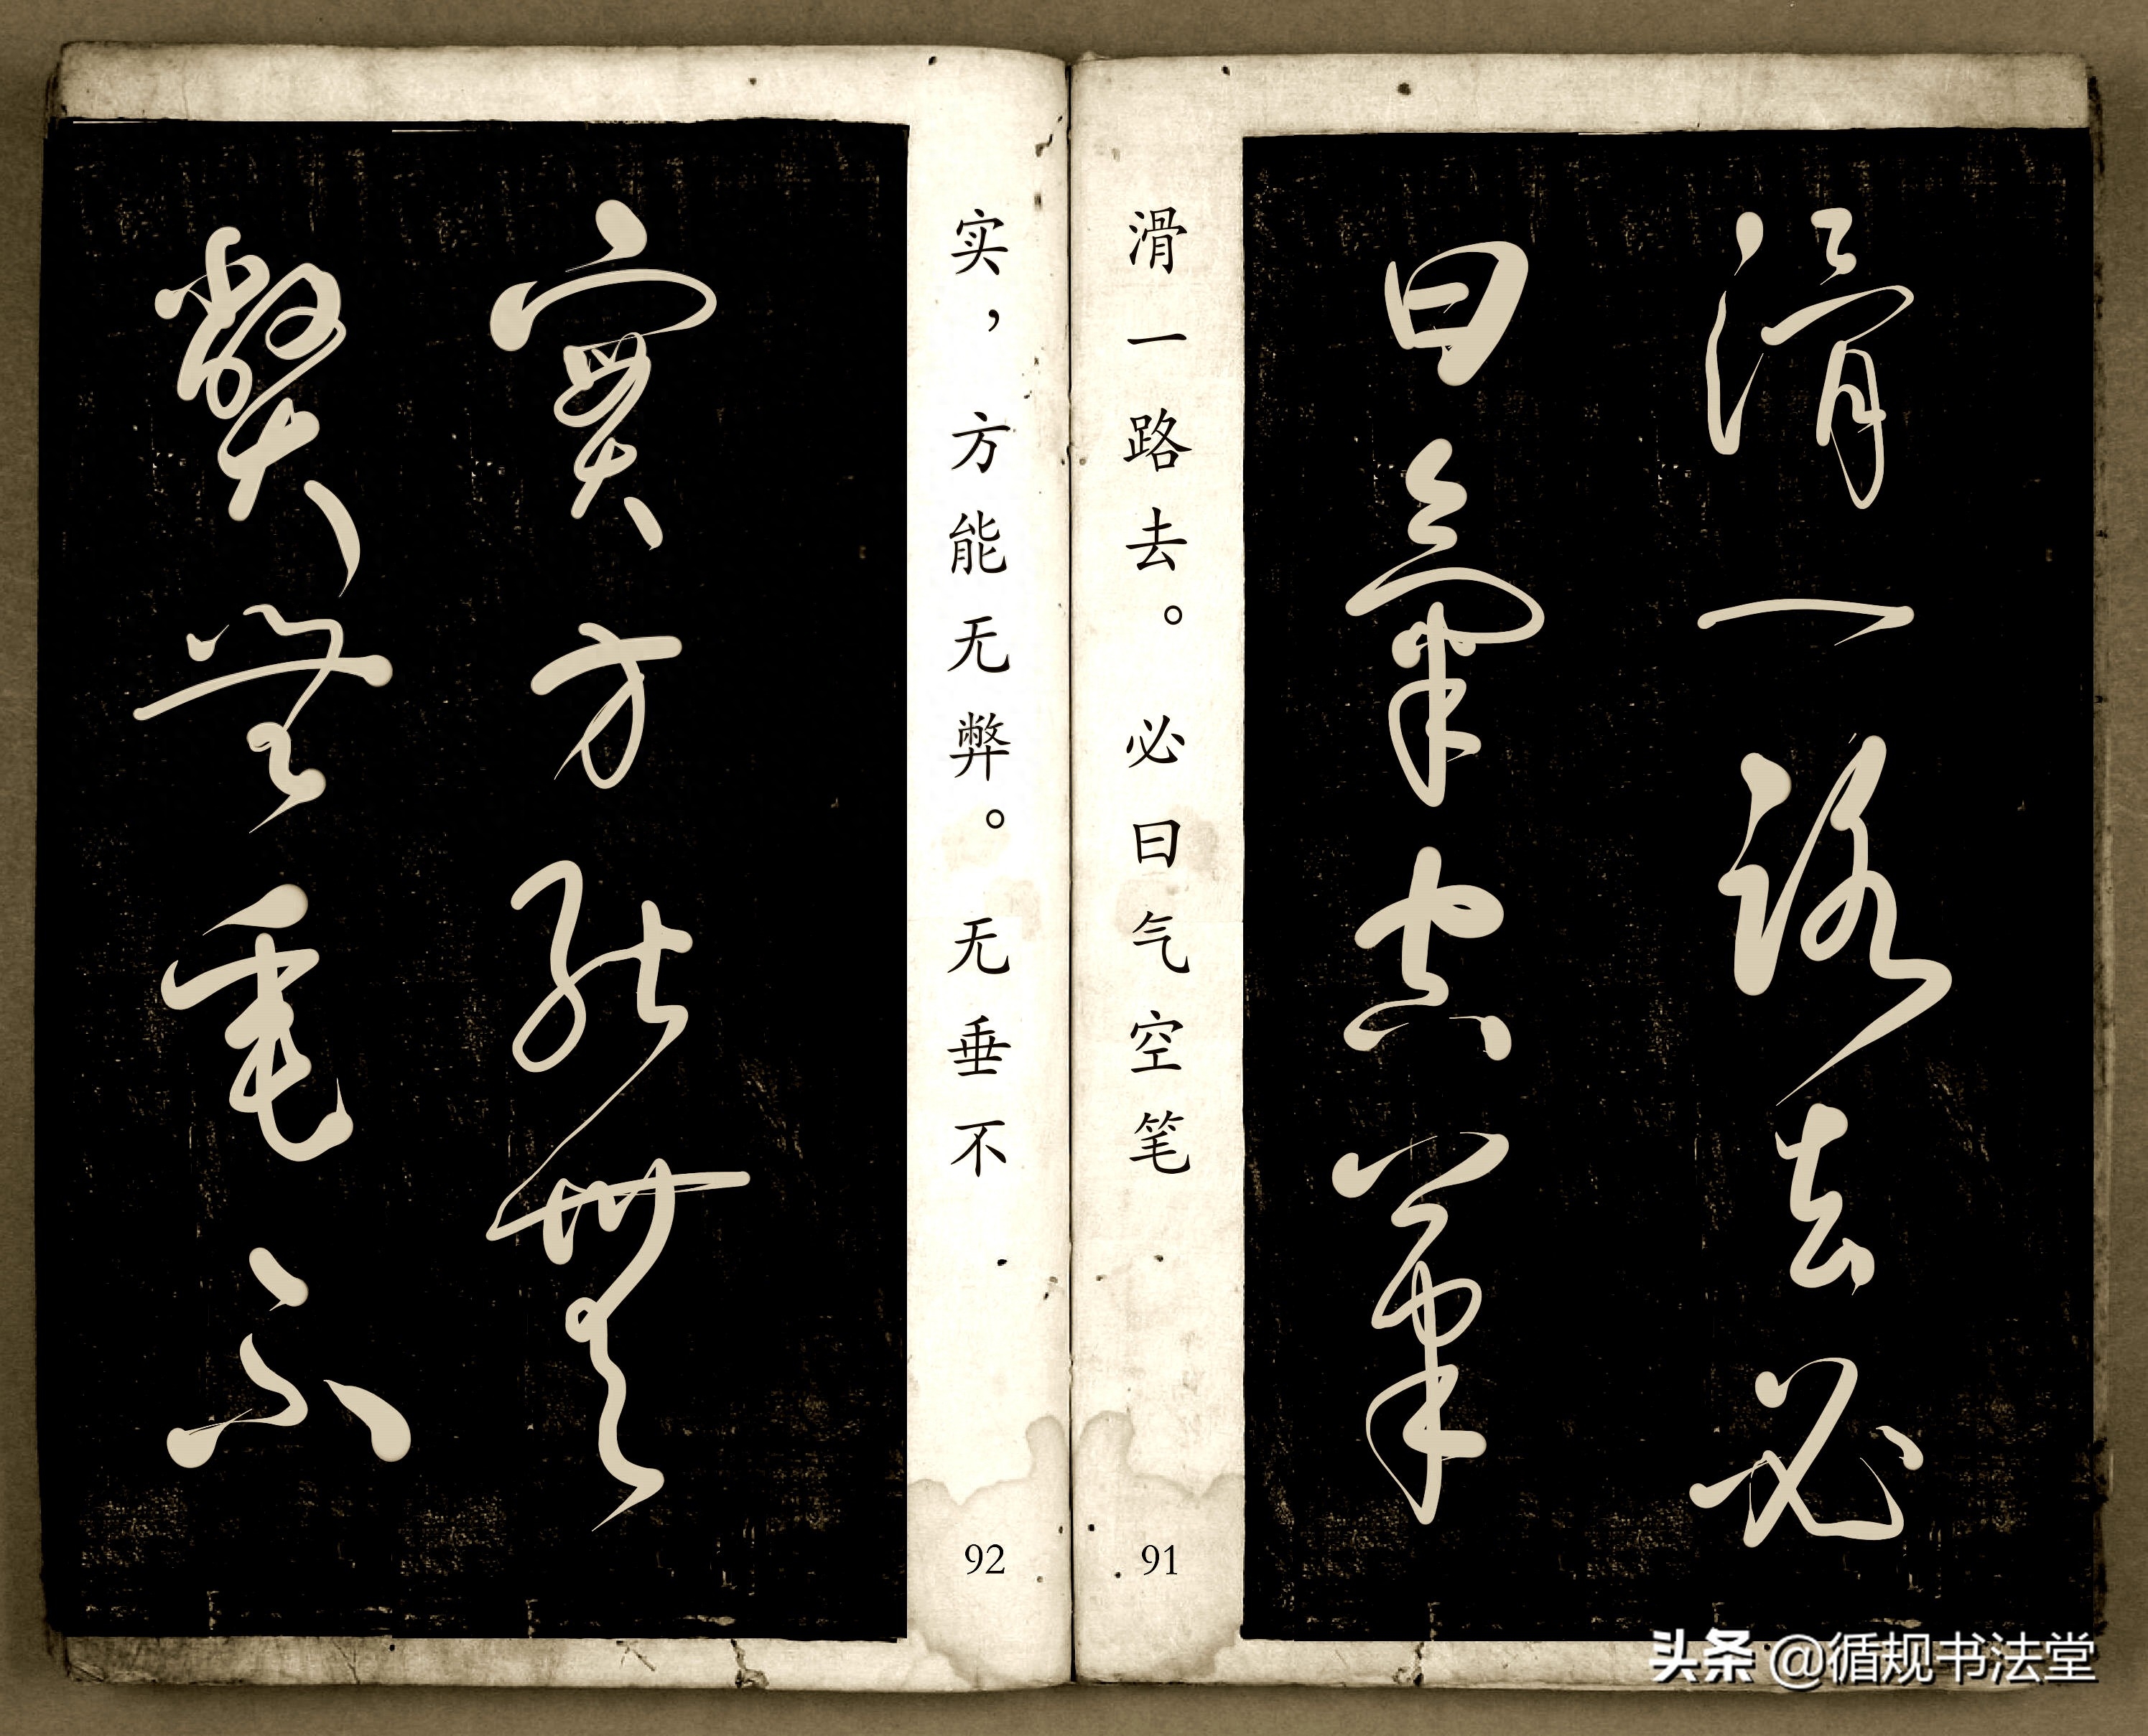 滑一路去必
曰氣空筆
滑一路去。必曰气空笔
91
實方能無
弊無垂不
实，方能无弊。无垂不
92
头条 @循规书法堂